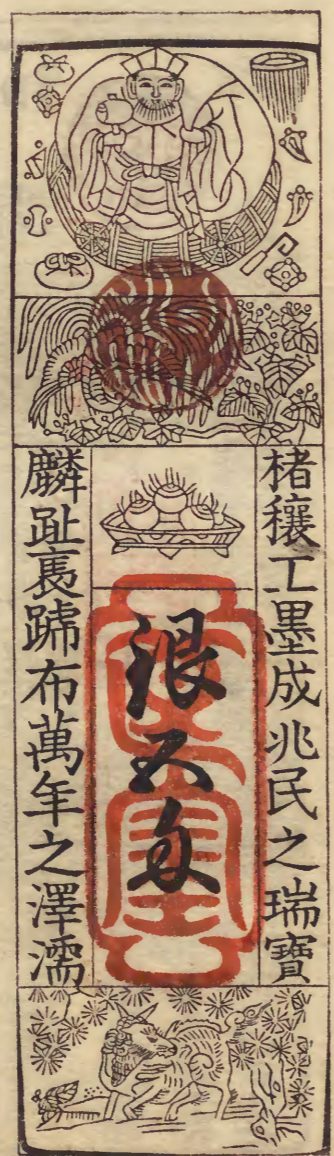 楮穰工墨成兆民之瑞寶
銀五匁
麟趾褭蹏布萬年之澤濡